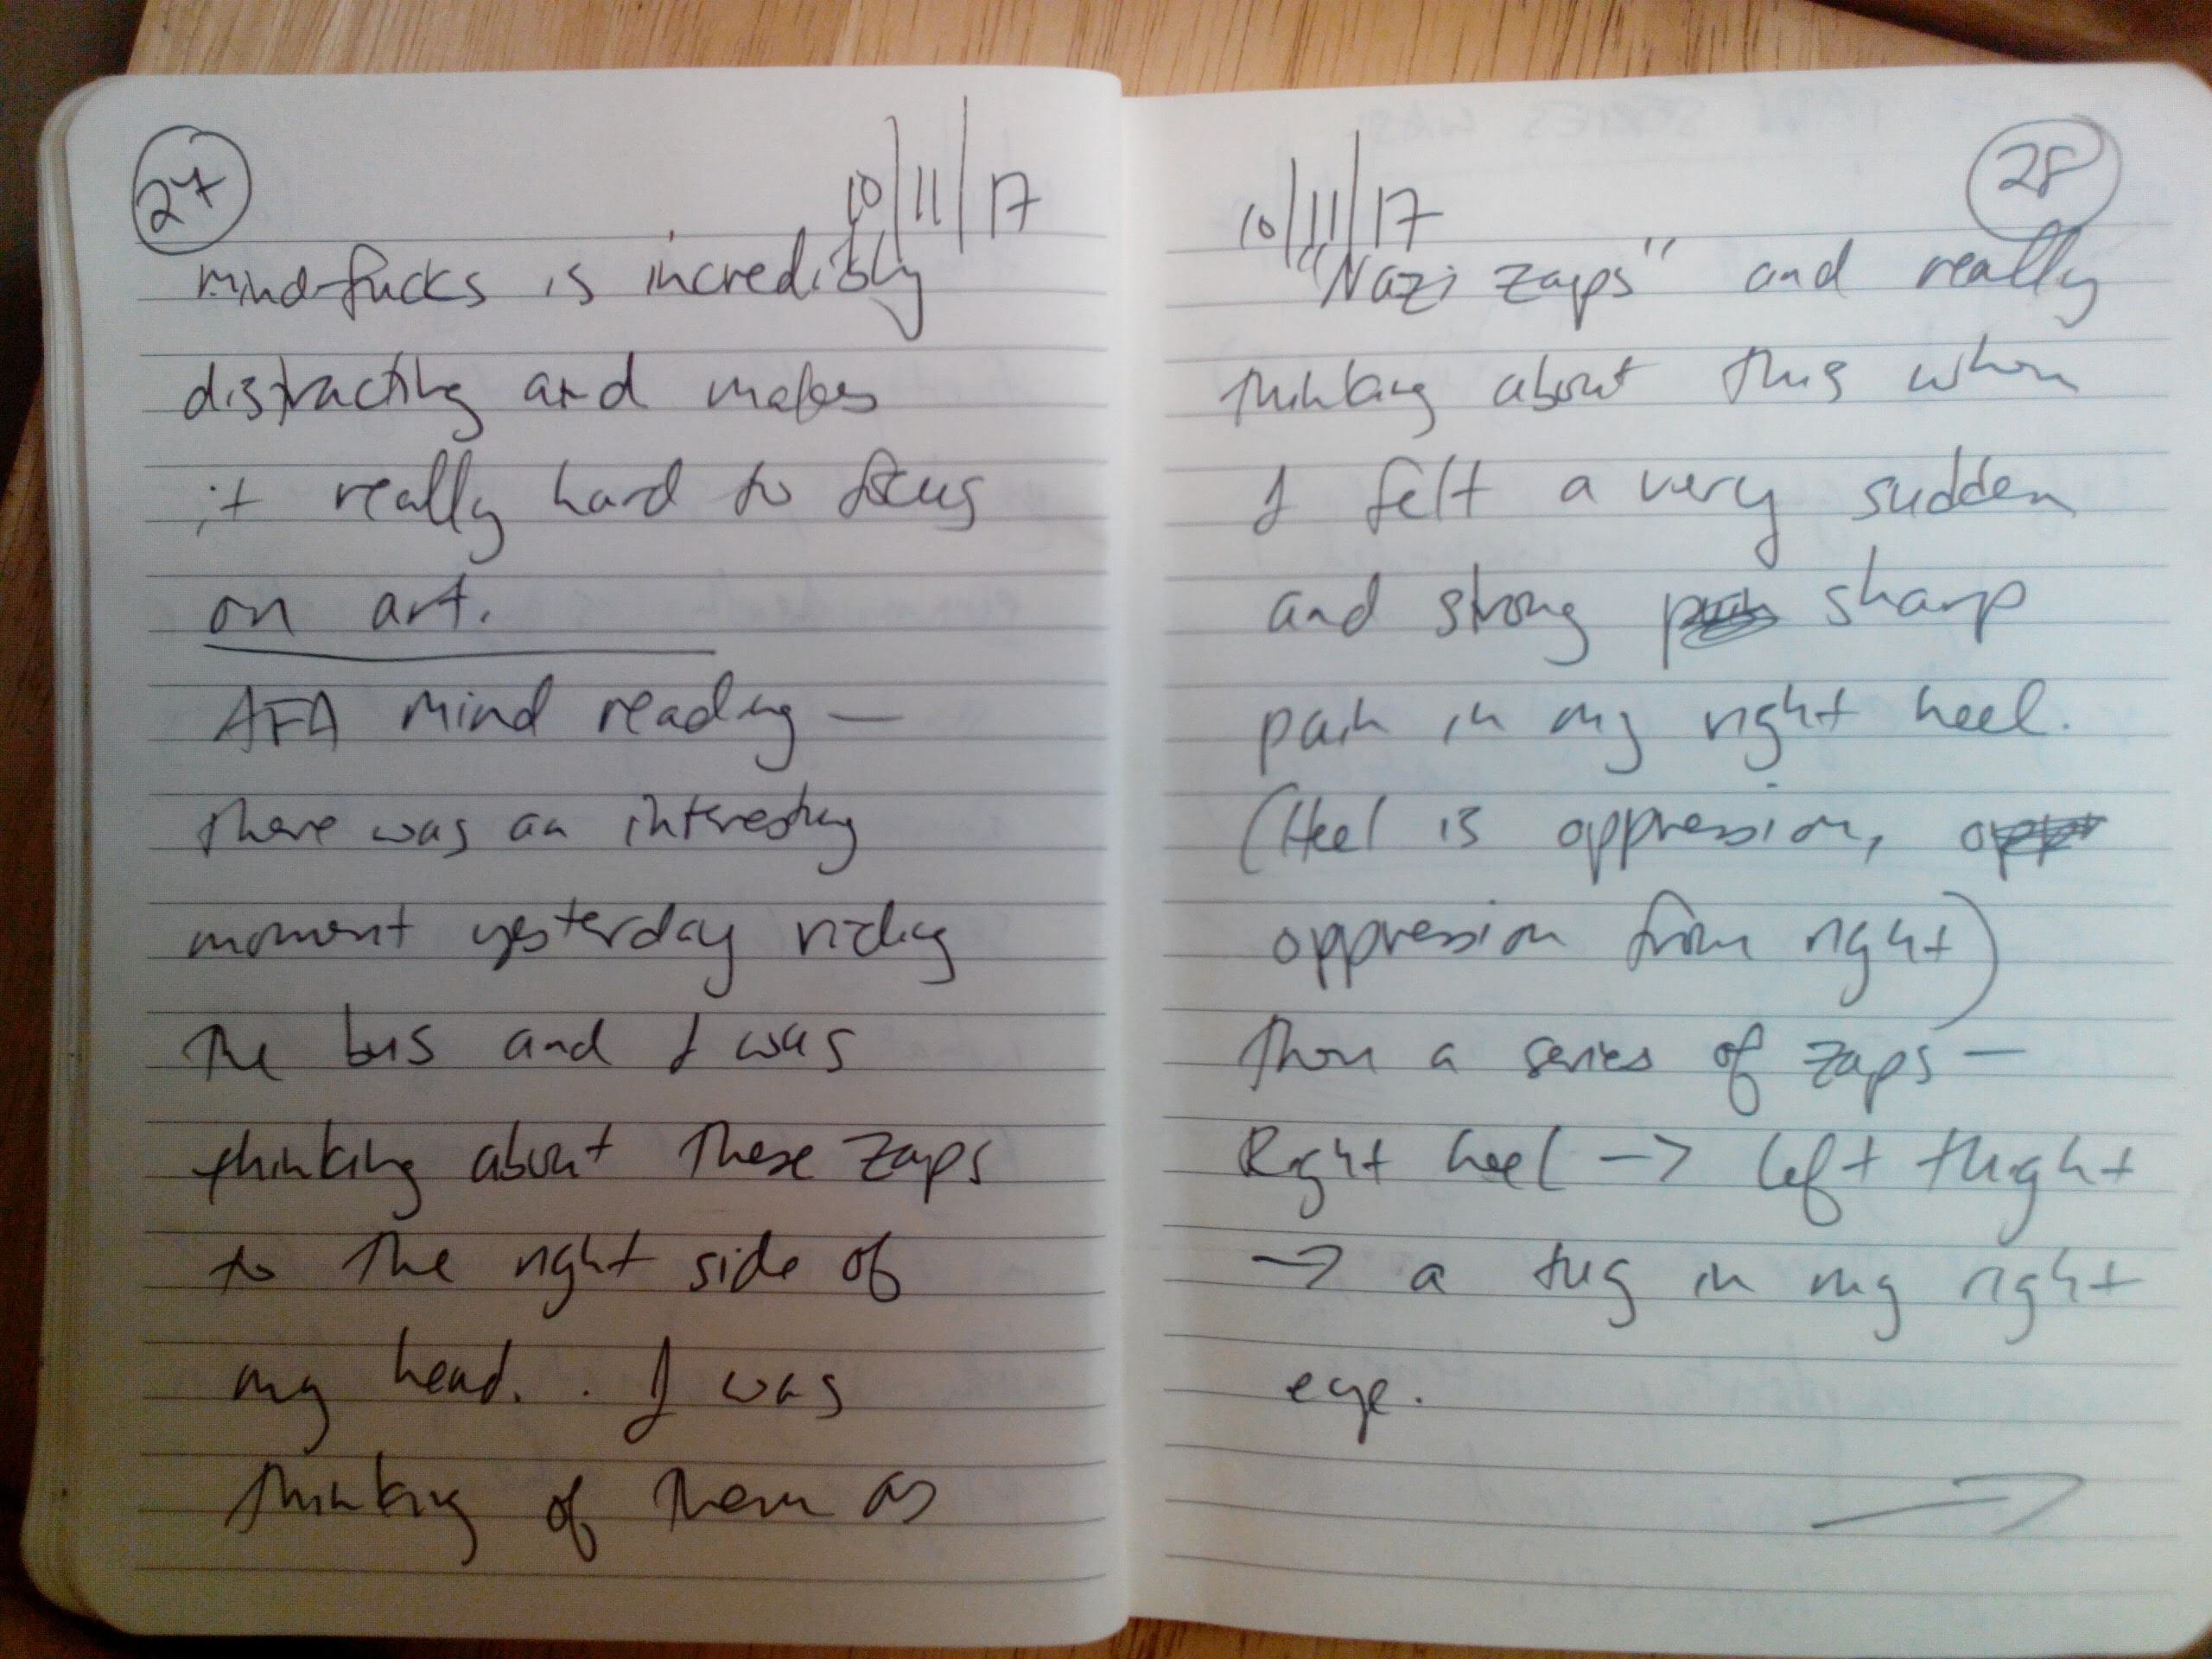 27
10/11/17
mind-fucks is incredibly
distracting and makes
it really hard to focus
on art.
AFA mind reading —
there was an interesting
moment yesterday riding
the bus and I was
thinking about these zaps
to the right side of
my head. . I was
thinking of them as
28
10/11/17
"Nazi zaps" and really
thinking about this when
I felt a very sudden
and strong sharp
pain in my right heel.
(Heel is oppression,
oppression from right)
Then a series of zaps —
Right heel -> left thight
-> a tug in my right
eye.